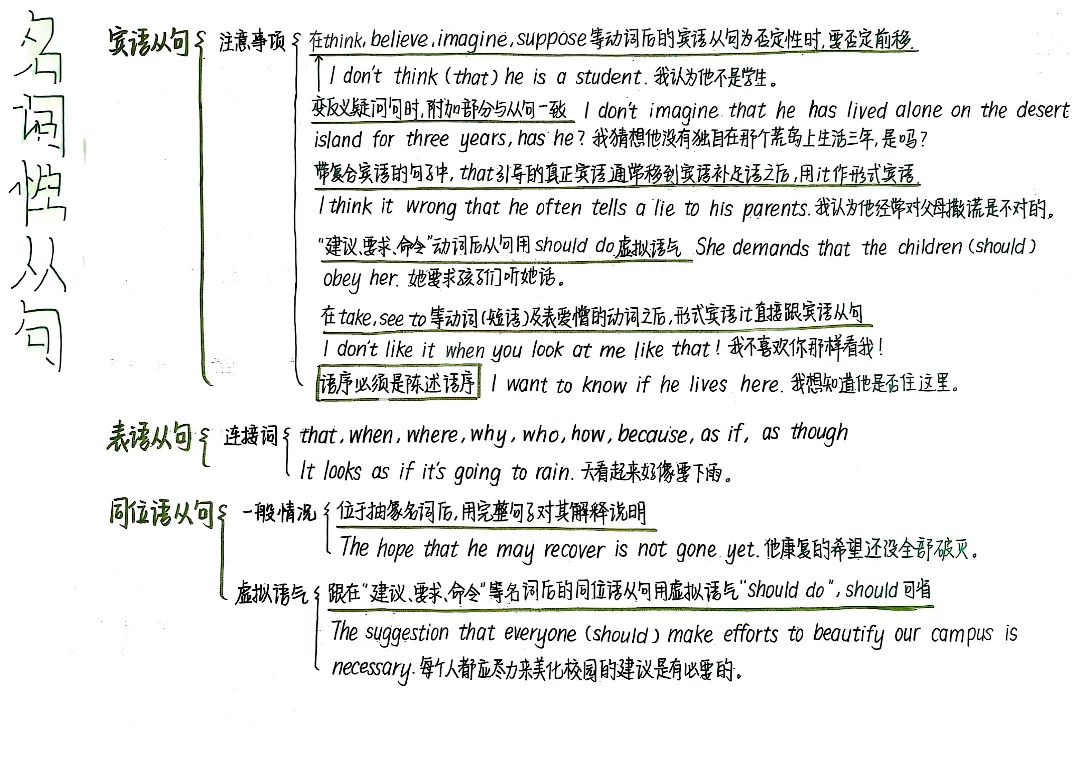 名词性从句
宾语从句 注意事项 在think, believe, imagine, suppose 等动词后的宾语从句为否定性时, 要否定前移.
I don't think (that) he is a student. 我认为他不是学生。
变反义疑问句时, 附加部分与从句一致 I don't imagine that he has lived alone on the desert
island for three years, has he? 我猜想他没有独自在那个荒岛上生活三年, 是吗?
带复合宾语的句子中, that引导的真正宾语通常移到宾语补足语之后, 用it作形式宾语.
I think it wrong that he often tells a lie to his parents. 我认为他经常对父母撒谎是不对的。
"建议、要求、命令"动词后从句用should do虚拟语气 She demands that the children (should)
obey her. 她要求孩子们听她话。
在take, see to 等动词(短语)及表爱憎的动词之后, 形式宾语it直接跟宾语从句
I don't like it when you look at me like that! 我不喜欢你那样看我!
语序必须是陈述语序 I want to know if he lives here. 我想知道他是否住这里。
表语从句 连接词 that, when, where, why, who, how, because, as if, as though
It looks as if it's going to rain. 天看起来好像要下雨。
同位语从句 一般情况 位于抽象名词后, 用完整句子对其解释说明
The hope that he may recover is not gone yet. 他康复的希望还没全部破灭。
虚拟语气 跟在"建议、要求、命令"等名词后的同位语从句用虚拟语气"should do", should可省
The suggestion that everyone (should) make efforts to beautify our campus is
necessary. 每个人都应尽力来美化校园的建议是有必要的。